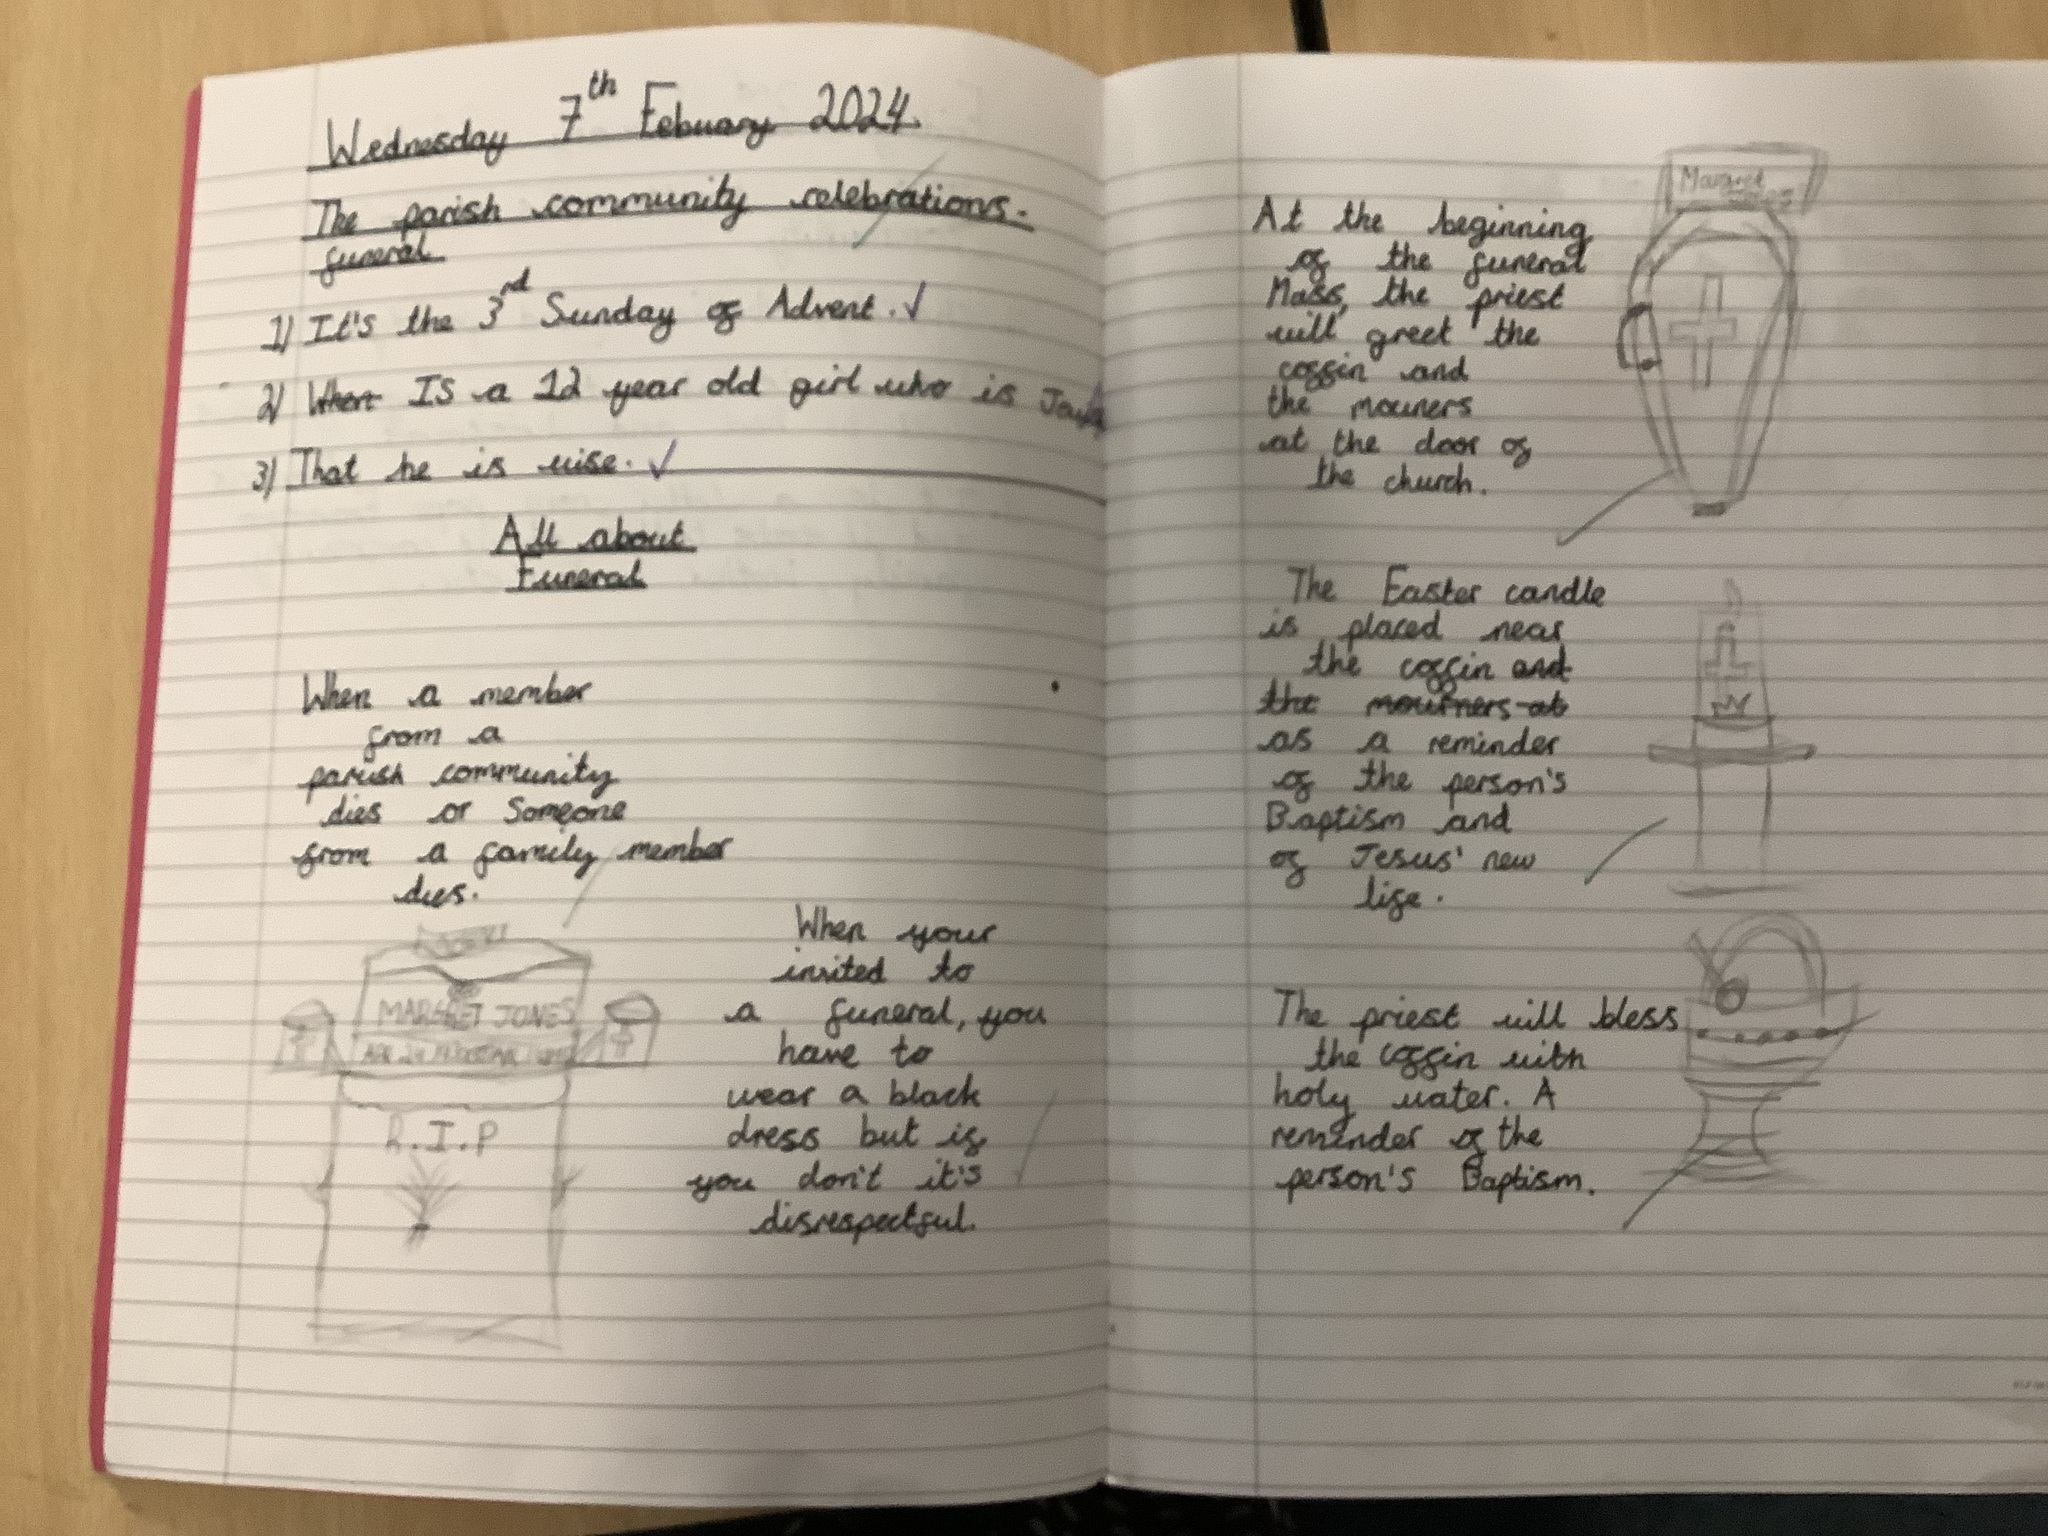 Wednesday 7th Febuary 2024.
The parish community celebrations.
funeral
1) It's the 3rd Sunday of Advent.
2) When IS a 12 year old girl who is
3) That he is wise.
All about
Funeral
When a member
from a
parish community
dies or Someone
from a family member
dies.
MARGRET JONES
R.I.P
When your
invited to
a funeral, you
have to
wear a black
dress but if
you don't it's
disrespectful.
Margret
At the beginning
of the funeral
Mass, the priest
will greet the
coffin and
the mouners
at the door of
the church.
The Easter candle
is placed near
the coffin and
the mourners at
as a reminder
of the person's
Baptism and
of Jesus' new
life.
The priest will bless
the coffin with
holy water. A
reminder of the
person's Baptism.